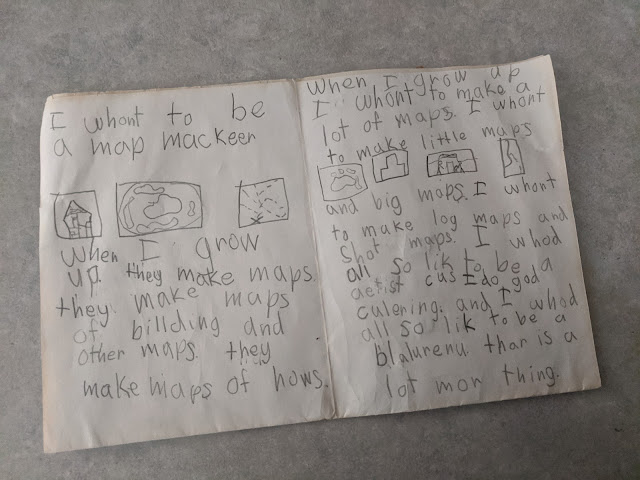 I whont to be
a map mackeer
When I grow
up. they make maps.
they make maps
of billding and
other maps. they
make maps of hows.
When I grow up
I whont to make a
lot of maps. I whont
to make little maps
and big maps. I whont
to make log maps and
Shot maps. I whod
all so lik to be a
aetist cus I do god
culering. and I whod
all so lik to be a
blalurenu. thar is a
lot mor thing.